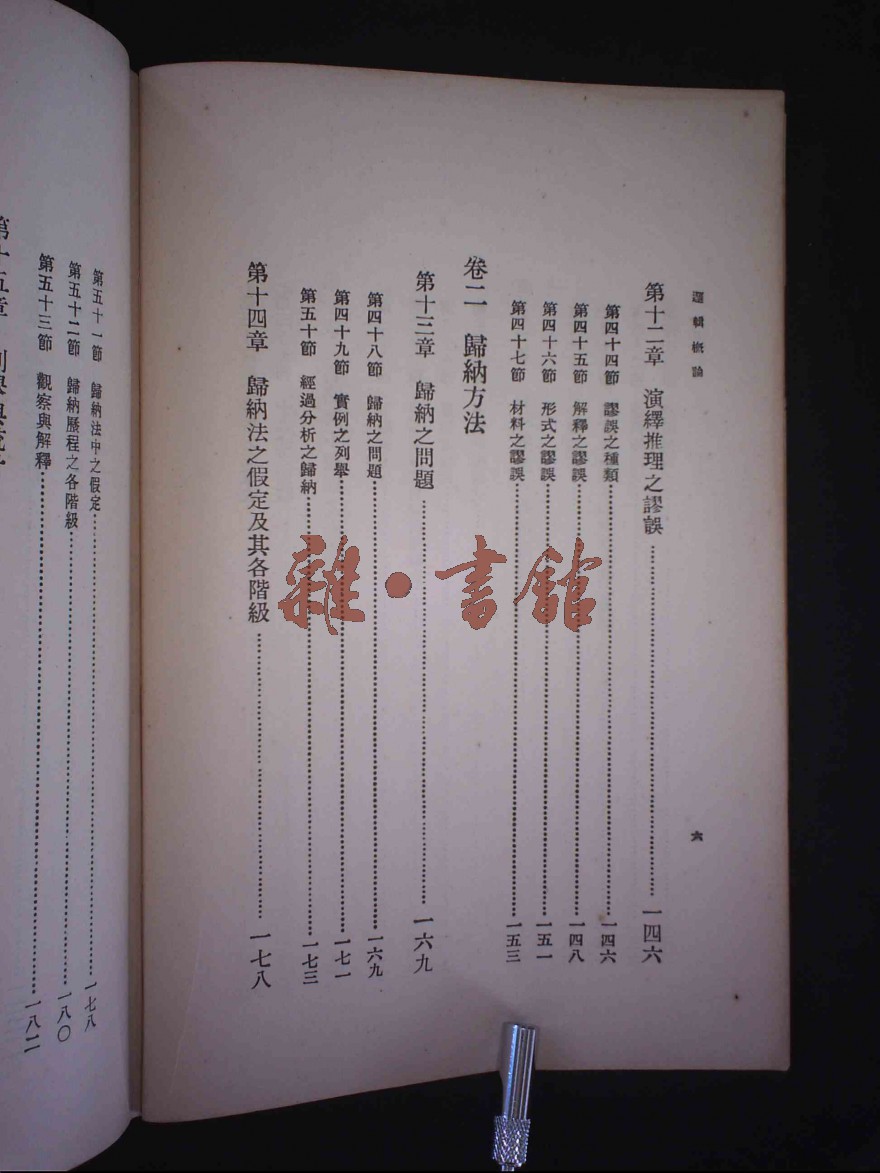 邏輯概論
六
第十二章　演繹推理之謬誤……一四六
第四十四節　謬誤之種類……一四六
第四十五節　解釋之謬誤……一四八
第四十六節　形式之謬誤……一五一
第四十七節　材料之謬誤……一五三
卷二　歸納方法
第十三章　歸納之問題……一六九
第四十八節　歸納之問題……一六九
第四十九節　實例之列舉……一七一
第五十節　經過分析之歸納……一七三
第十四章　歸納法之假定及其各階級……一七八
第五十一節　歸納法中之假定……一七八
第五十二節　歸納歷程之各階級……一八〇
第五十三節　觀察與解釋……一八二
第十五章
雜·書館